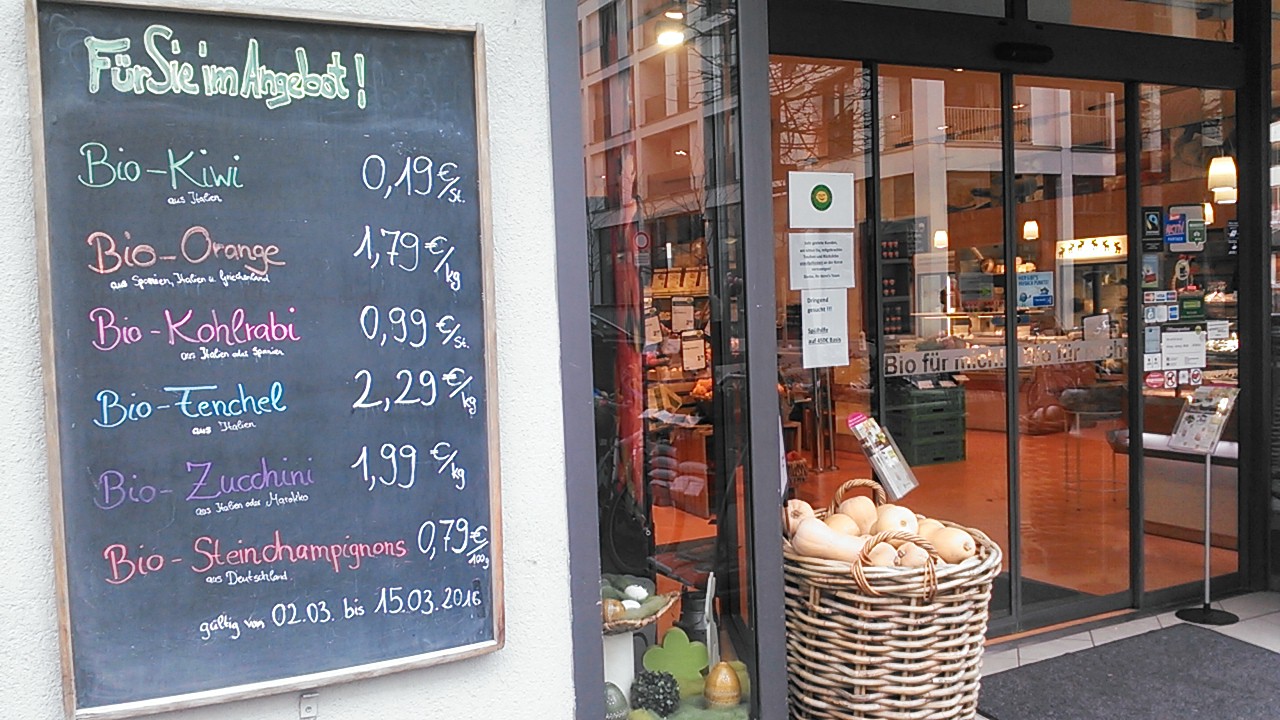 Für Sie im Angebot!
Bio-Kiwi 0,19 €/St.
aus Italien
Bio-Orange 1,79 €/kg
aus Spanien, Italien u. Griechenland
Bio-Kohlrabi 0,99 €/St.
aus Italien oder Spanien
Bio-Fenchel 2,29 €/kg
aus Italien
Bio-Zucchini 1,99 €/kg
aus Italien oder Marokko
Bio-Steinchampignons 0,79 €/100g
aus Deutschland
gültig von 02.03. bis 15.03.2016
Dringend
gesucht !!!
Spülhilfe
auf 450€ Basis
Bio für mich! Bio für